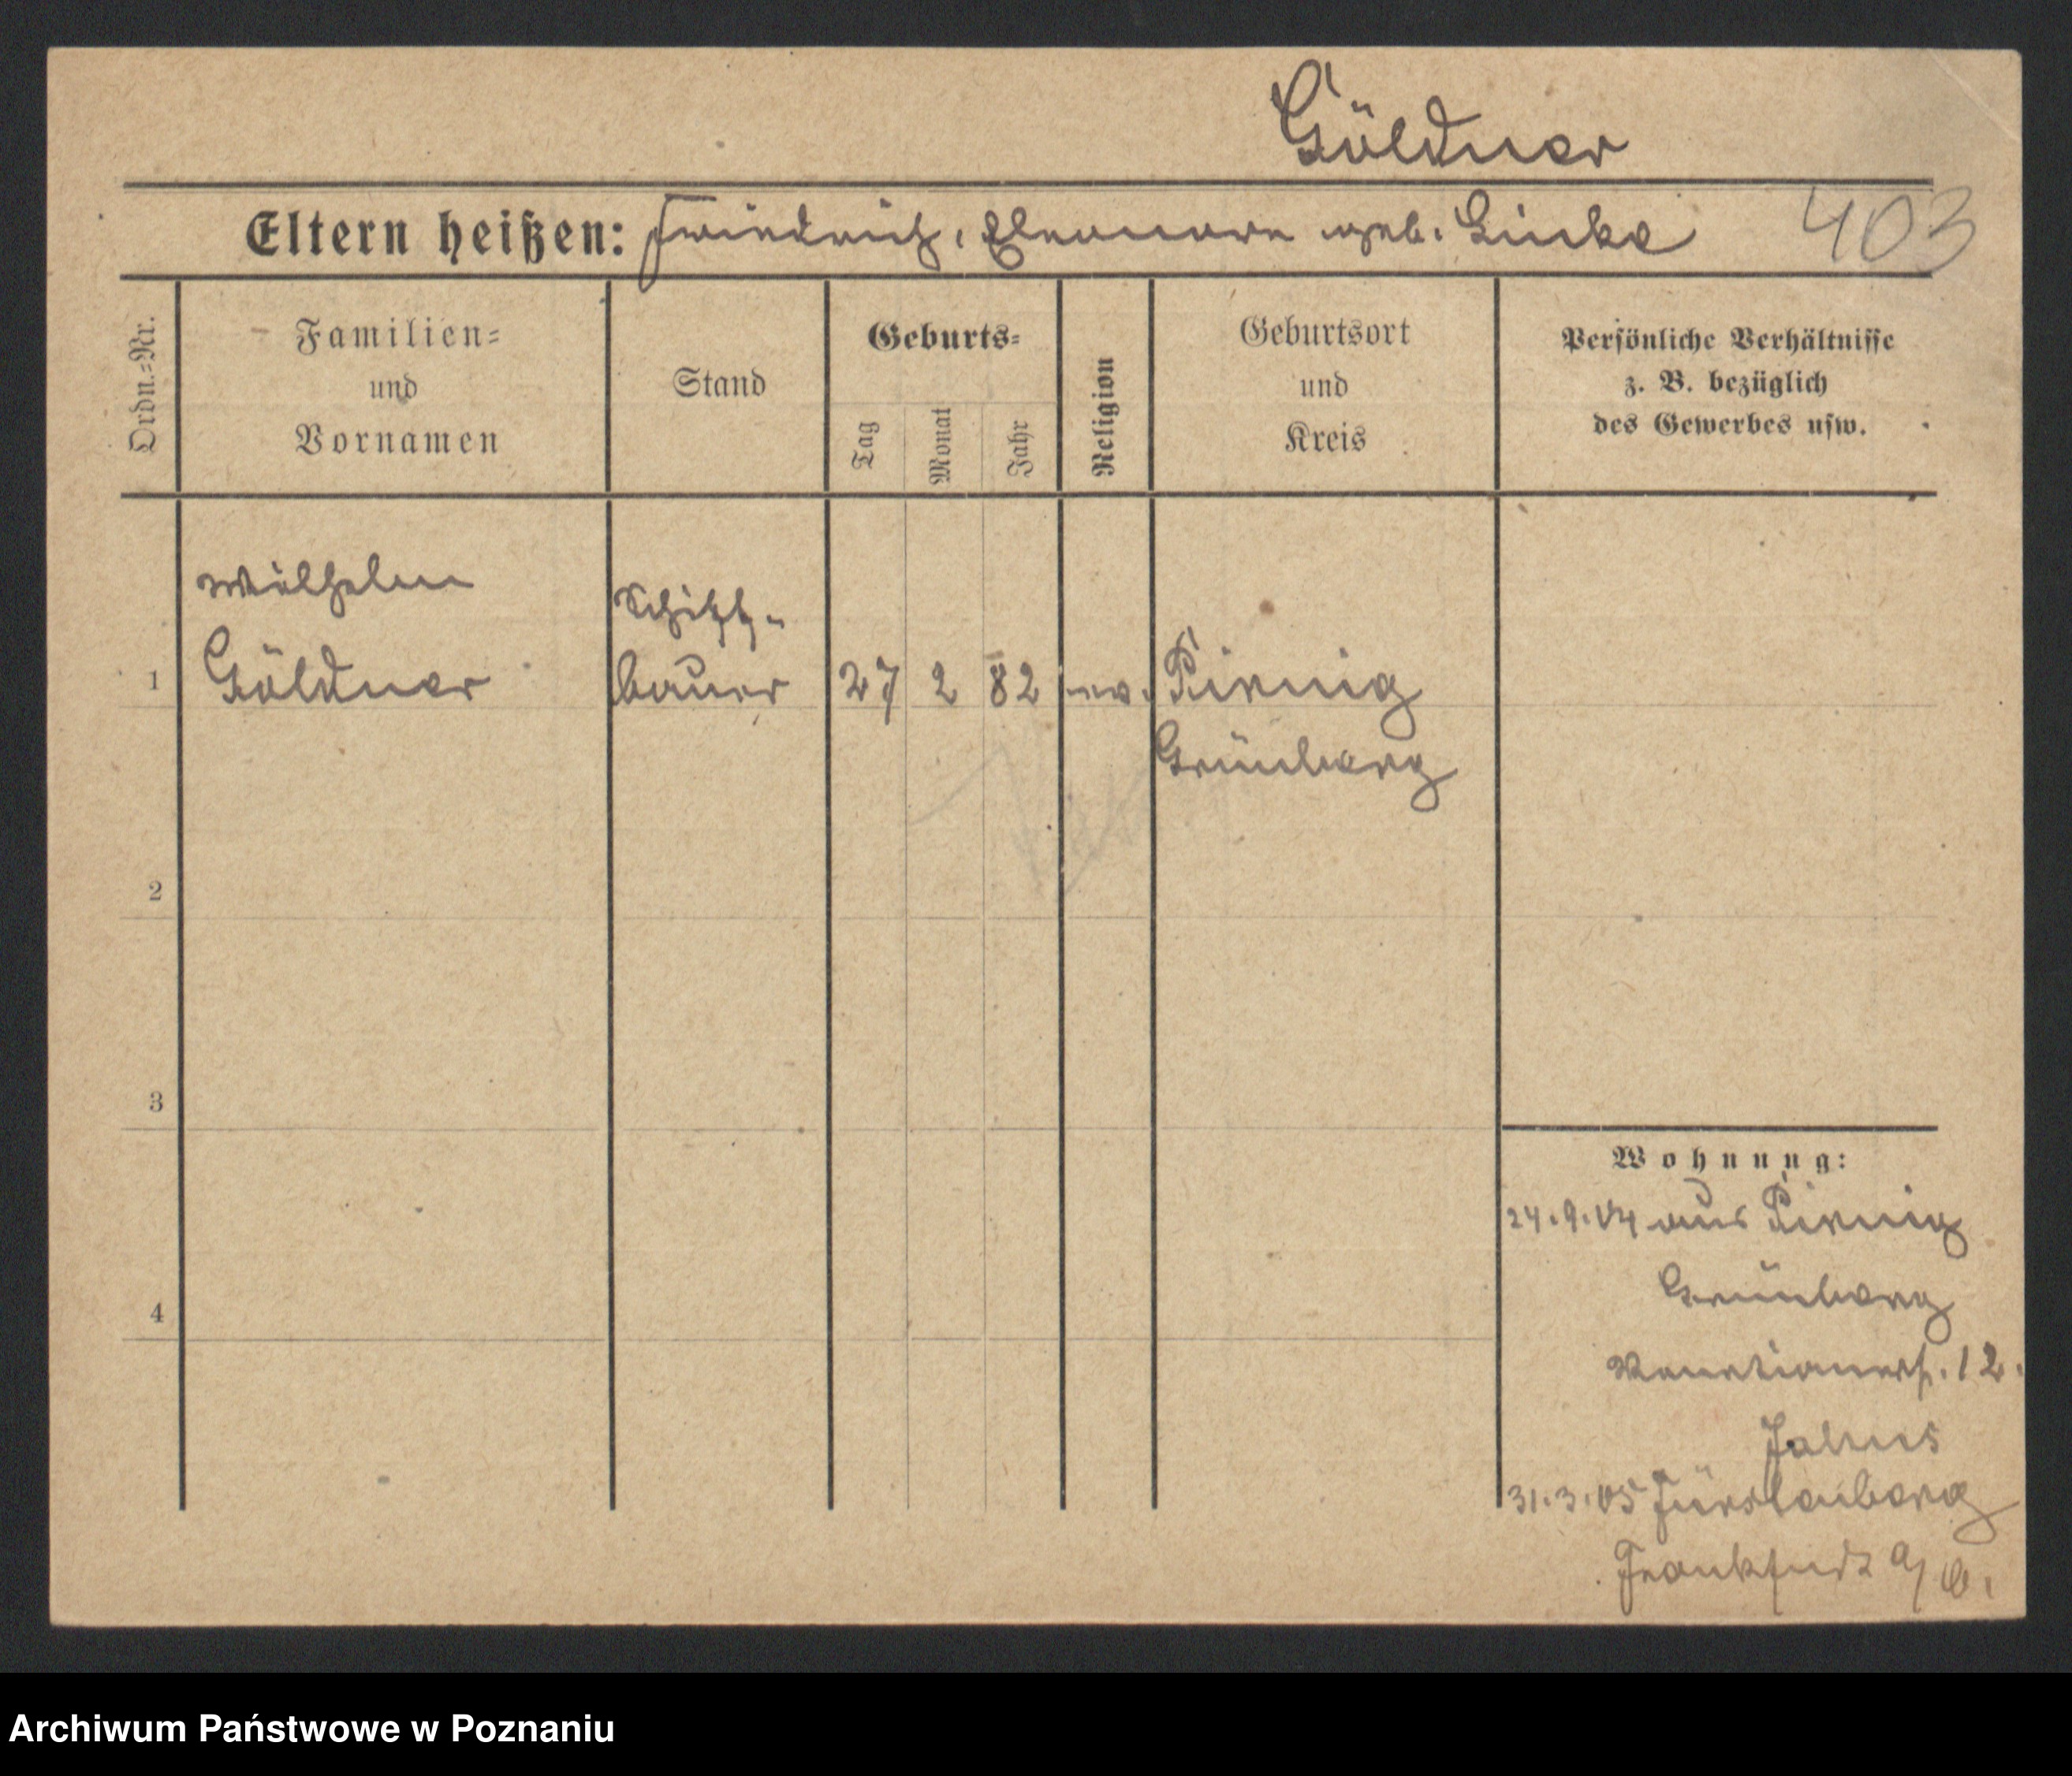 Göldner
Eltern heißen: Friedrich, Eleonore geb. Linke 403
Ordn.-Nr.
Familien-
und
Vornamen
Stand
Geburts-
Tag
Monat
Jahr
Religion
Geburtsort
und
Kreis
Persönliche Verhältnisse
z. B. bezüglich
des Gewerbes usw.
Wilhelm
Göldner
Schiff-
bauer
1 27 2 82 ev. Pirnig
Grünberg
2
3
4
Wohnung:
24.9.04 aus Pirnig
Grünberg
Venetianerst. 12.
31.3.05 Fürstenberg
Frankfurt a/O.
Archiwum Państwowe w Poznaniu